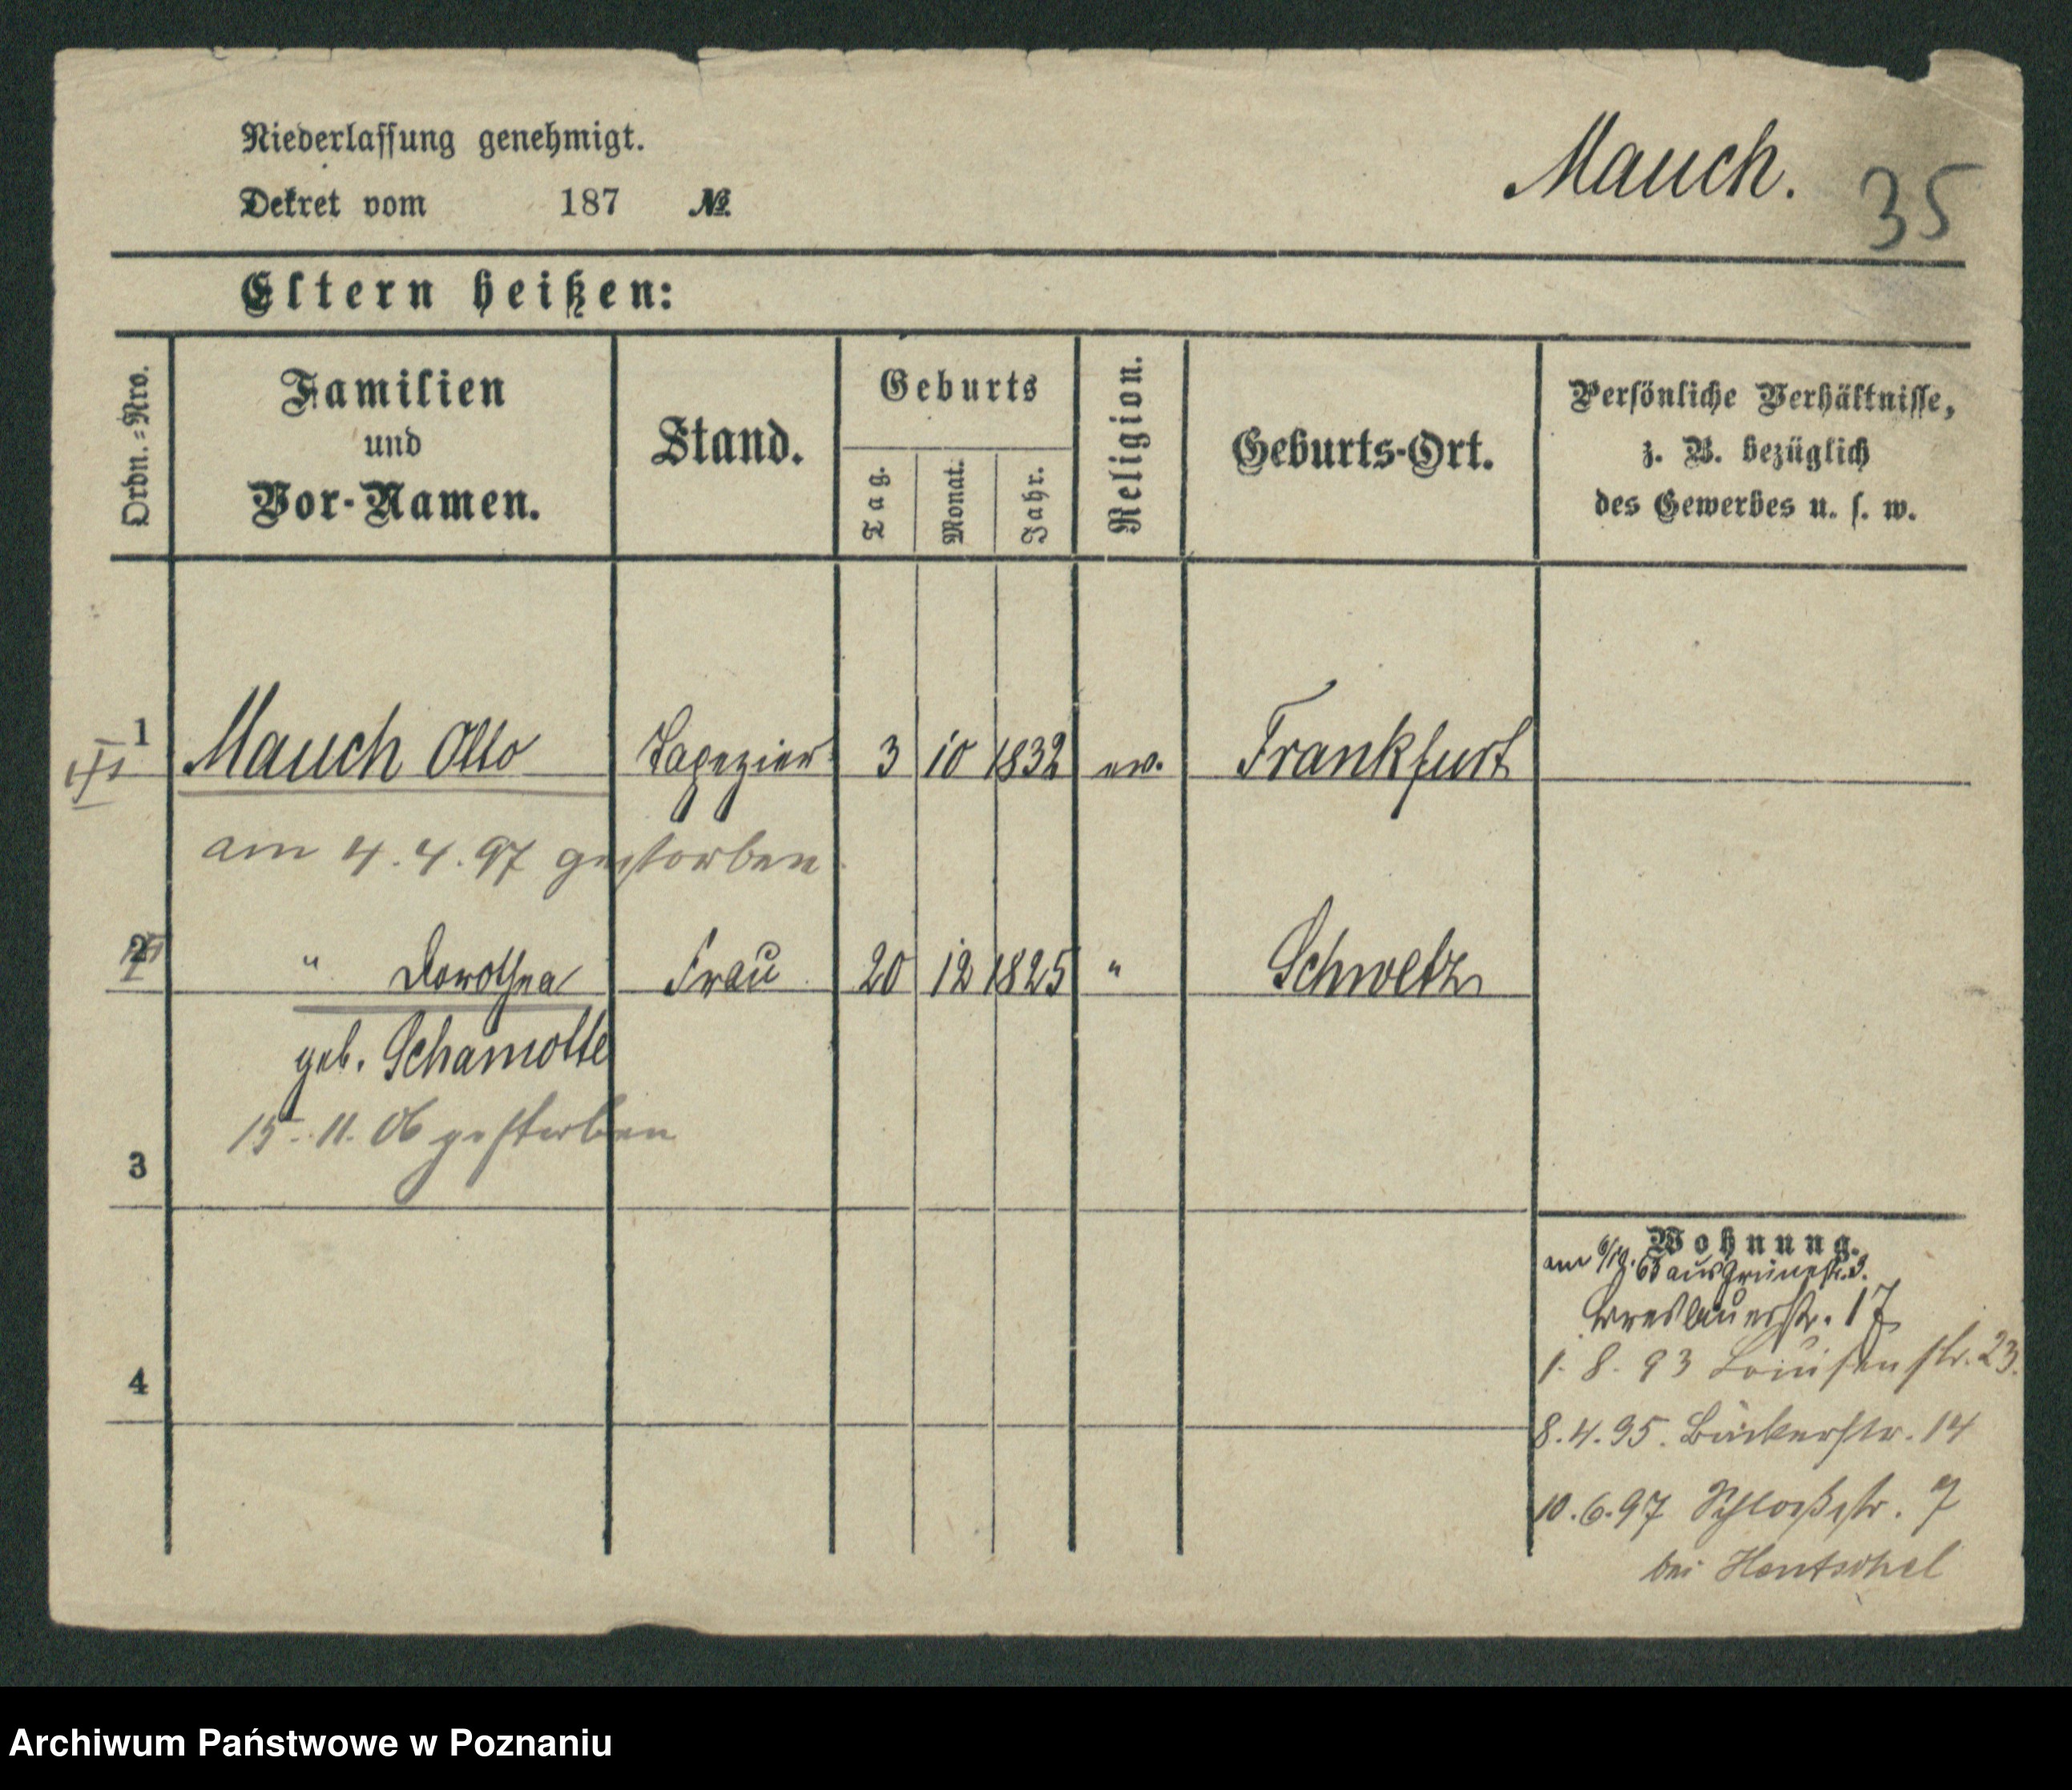 Niederlassung genehmigt.
Mauch.
35
Dekret vom 187 №
Eltern heißen:
Ordn.=Nro.
Familien
und
Vor-Namen.
Stand.
Geburts
Tag.
Monat.
Jahr.
Religion.
Geburts-Ort.
Persönliche Verhältnisse,
z. B. bezüglich
des Gewerbes u. s. w.
1 Mauch Otto Tapezier 3 10 1832 ev. Frankfurt
am 4.4.97 gestorben
2 " Dorothea Frau 20 12 1825 " Schwetz
geb. Schamotte
15.11.06 gestorben
3
4
Wohnung.
am aus Grünestr. 3.
Breslauerstr. 17
1.8.93 Louisenstr. 23.
8.4.95. Bäckerstr. 14
10.6.97 Schloßstr. 7
bei Hentschel
Archiwum Państwowe w Poznaniu